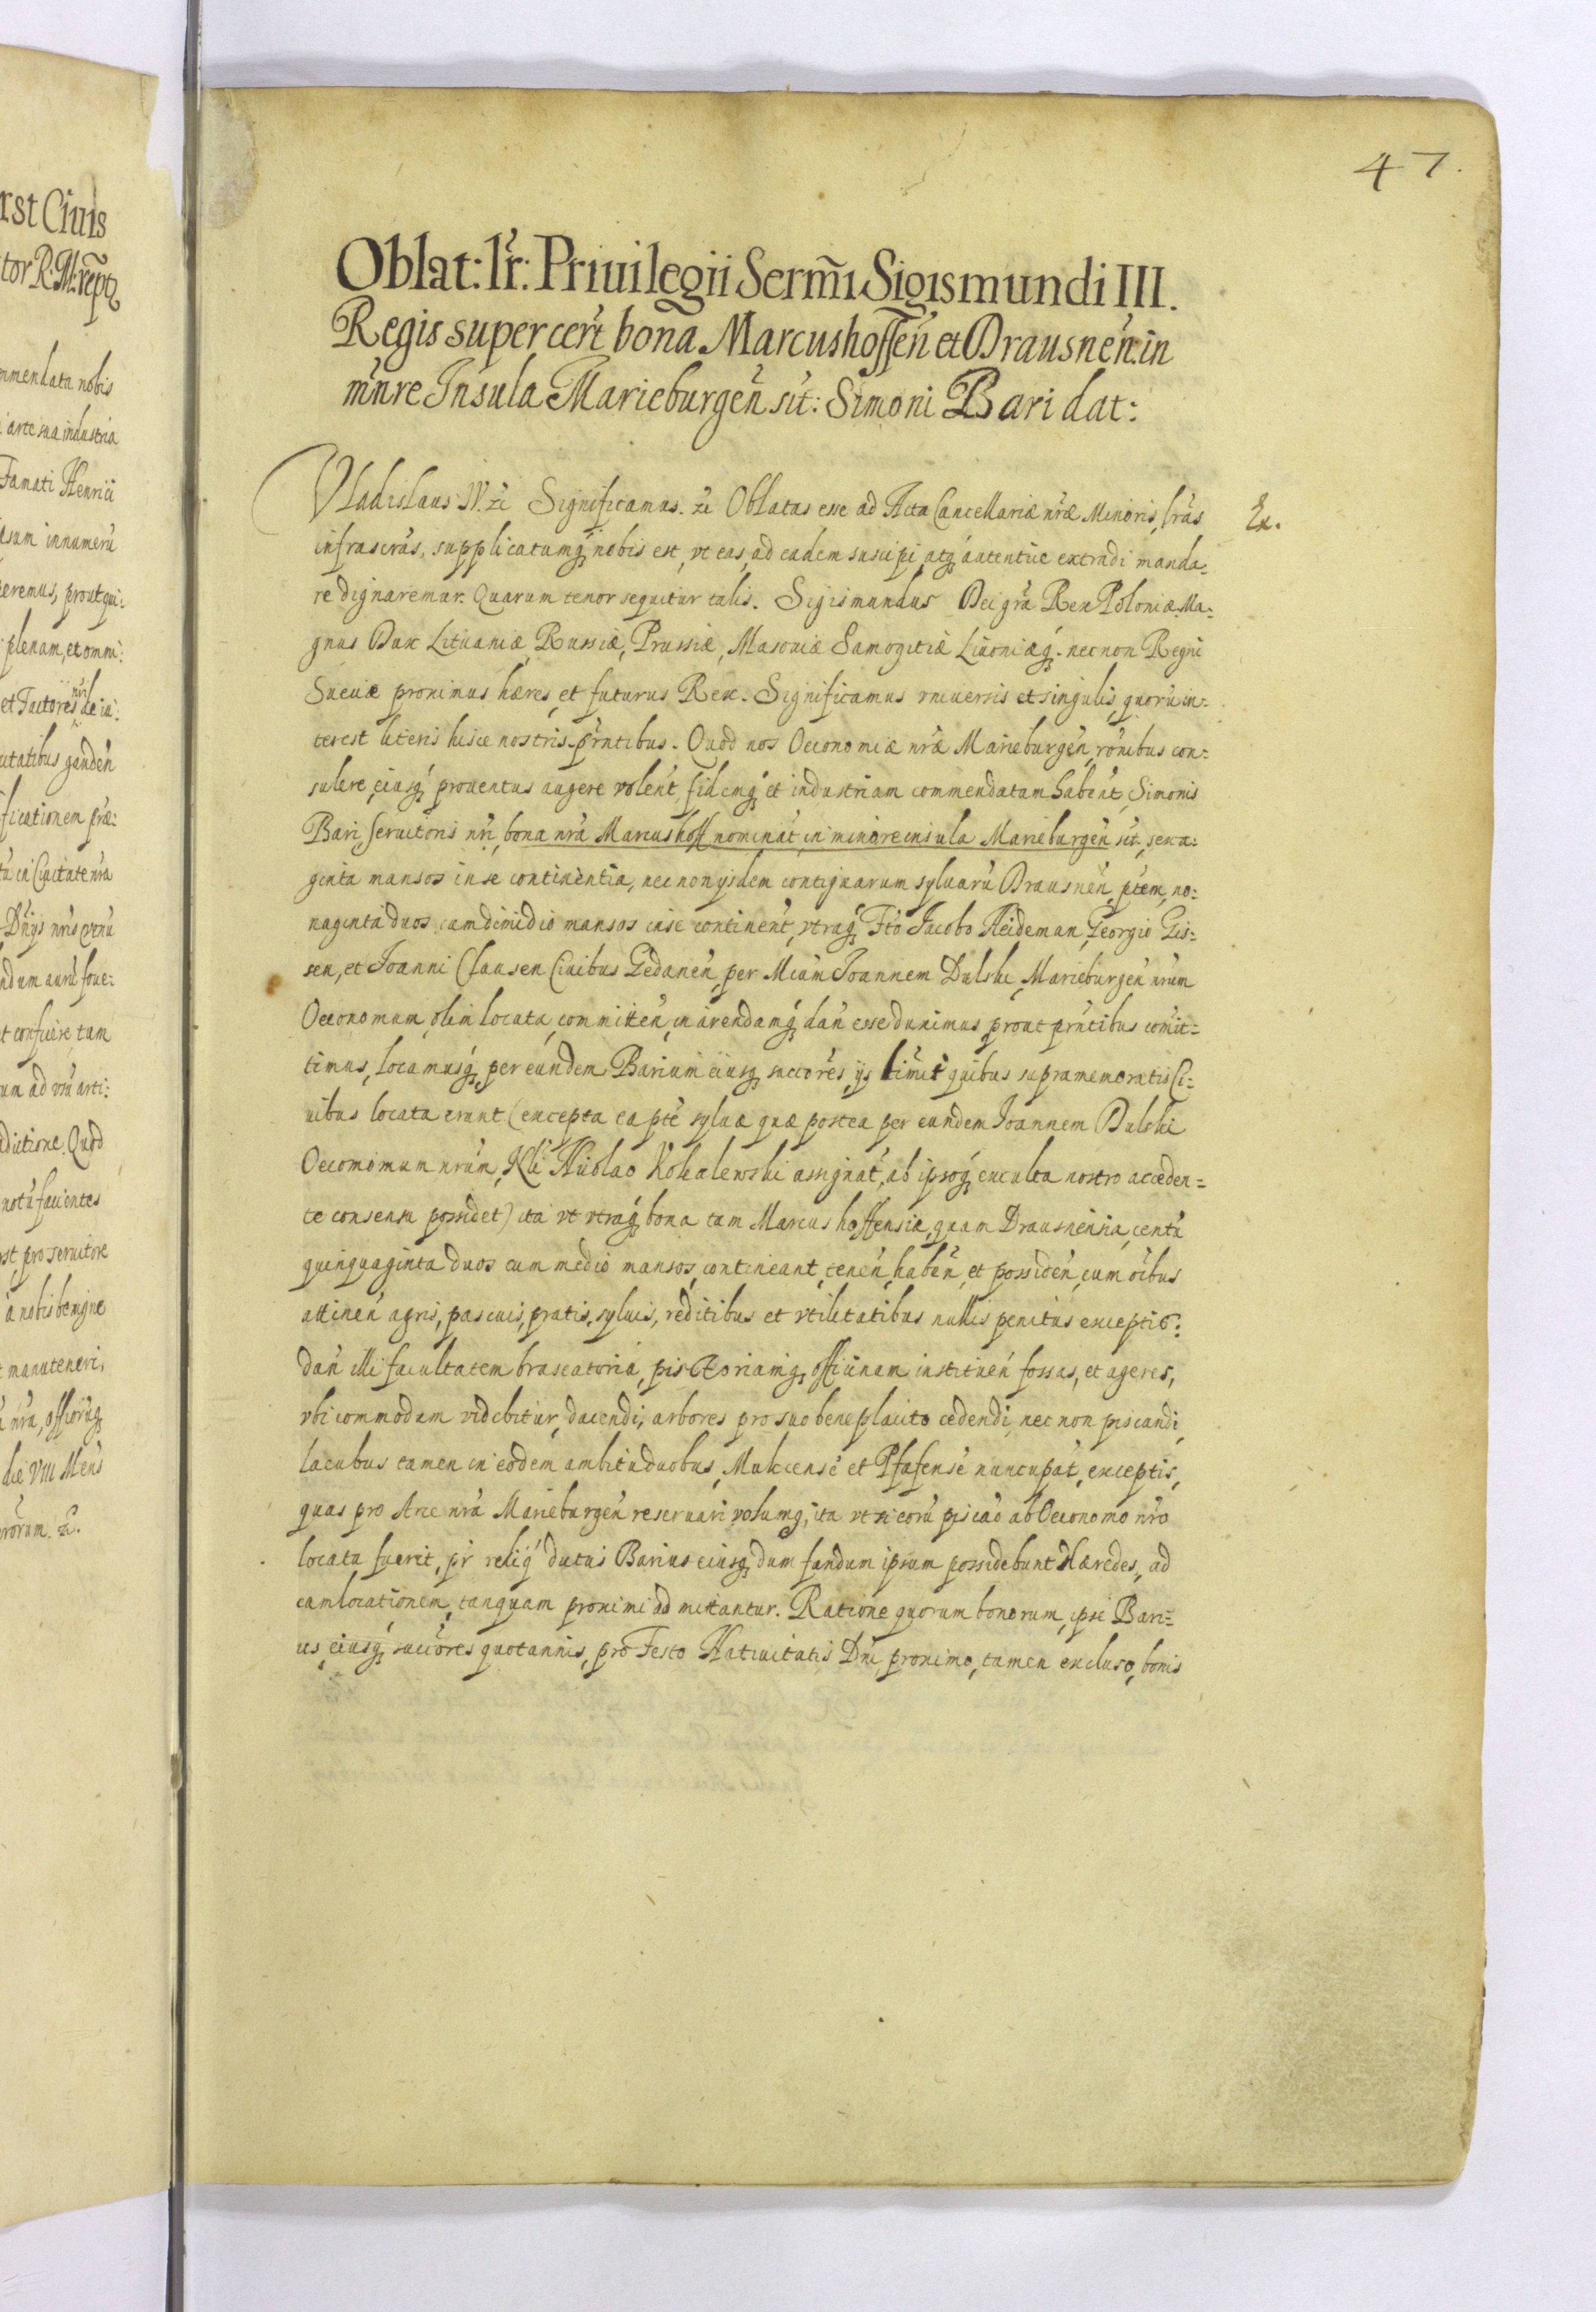 rst Ciuis
tor R: M: rept
mmendata nobis
arte sua industria
Famati Henrici
asum innumerũ
eremus, prout qui:
plenam, et omni:
nri
et Factores de iu:
utatibus gauden̄
ficationem præ:
tu in Ciuitate nr̃a
Dn̄ijs nr̃is
ndum aurũ foue:
t conficere, tam
um ad vsũ arti:
dictione. Quod
notũ facientes
rst pro seruitore
à nobis benigne
t manuteneri,
nr̃a, officiorũq̨
die VIII Mens̃
rorum. ꝛc̃.
47.
Oblat: lr̃: Priuilegii Serm̃i Sigismundi III.
Regis super cer̃t bona Marcushoffen̄ et Drausnen̄. in
mñre Insula Marieburgen̄ sit̃: Simoni Bari dat:
Vladislaus IV. ꝛc̃ Significamus. ꝛc̃ Oblatas esse ad Acta Cancellariæ nr̃æ Minoris, lr̃as
Ex.
infrascr̃as, supplicatumq̨ nobis est, vt eas, ad eadem suscipi, atq̨ autentice extradi manda:
re dignaremur. Quarum tenor sequitur talis. Sigismundus Dei gr̃a Rex Poloniæ Ma:
gnus Dux Lituaniæ, Russiæ, Prussiæ, Masouiæ Samogitiæ Liuoniæq̨. nec non Regni
Sueuiæ proximus hæres, et futurus Rex. Significamus vniuersis et singulis, quorũ in:
terest literis hisce nostris pr̃ntibus. Quod nos Oeconomiæ nr̃æ Marieburgen̄, rõnibus con:
sulere, eiusq̨ prouentus augere volen̄t, fidemq̨ et industriam commendatam haben̄t, Simonis
Bari, seruitoris nr̃i, bona nr̃a Marcushoff nominat̃, in minore insula Marieburgen̄ sit̃, sexa:
ginta mansos in se continentia, nec non ijsdem contiguarum syluarũ Drausnen̄, ptem, no:
naginta duos cum dimidio mansos in se continen̄t, vtraq̨ Fto Jacobo Heideman, Georgio Gis:
sen, et Joanni Clausen Ciuibus Gedanen̄, per Mcum Joannem Dulski, Marieburgen̄ nr̃um
Oeconomum, olim locata, committen̄, in arendamq̨ dan̄ esse duximus, prout pr̃ntibus com̃it:
timus, locamusq̨, per eundem Barium eiusq̨ succõres, ijs limit̃ quibus supramemoratis Ci:
uibus locata erunt (excepta ea pte syluæ quæ postea per eundem Joannem Dulski
Oeconomum nr̃um, Nli Nicolao Kokalewski assignat̃, ab ipsoq̨ exculta nostro acceden:
te consensu possidet) ita vt vtraq̨ bona tam Marcushoffensia, quam Drausnensia, centũ
quinquaginta duos cum medio mansos, contineant, tenen̄, haben̄, et possiden̄, cum oĩbus
attinen̄ agris, pascuis, pratis, syluis, reditibus et vtilitatibus nullis penitus exceptis:
dan̄ illi facultatem braxeatoriã, pistoriamq̨ officinam instituen̄ fossas, et ageres,
vbi commodum videbitur, ducendi, arbores pro suo beneplacito cedendi, nec non piscandi,
lacubus tamen in eodem ambitu duobus, Mukcense et Pfafense nuncupat̃, exceptis,
quas pro Arce nr̃a Marieburgen̄ reseruari volumq̨, ita vt si eorũ piscãõ ab Oeconomo nr̃o
locata fuerit, pr̃ reliq̨ dictus Barius eiusq̨ dum fundum ipsum possidebunt Hæredes, ad
eam locationem, tanquam proximi admittantur. Ratione quorum bonorum, ipse Bari:
us, eiusq̨ succõres quotannis, pro Festo Natiuitatis Dn̄i proximo, tamen excluso, bonis